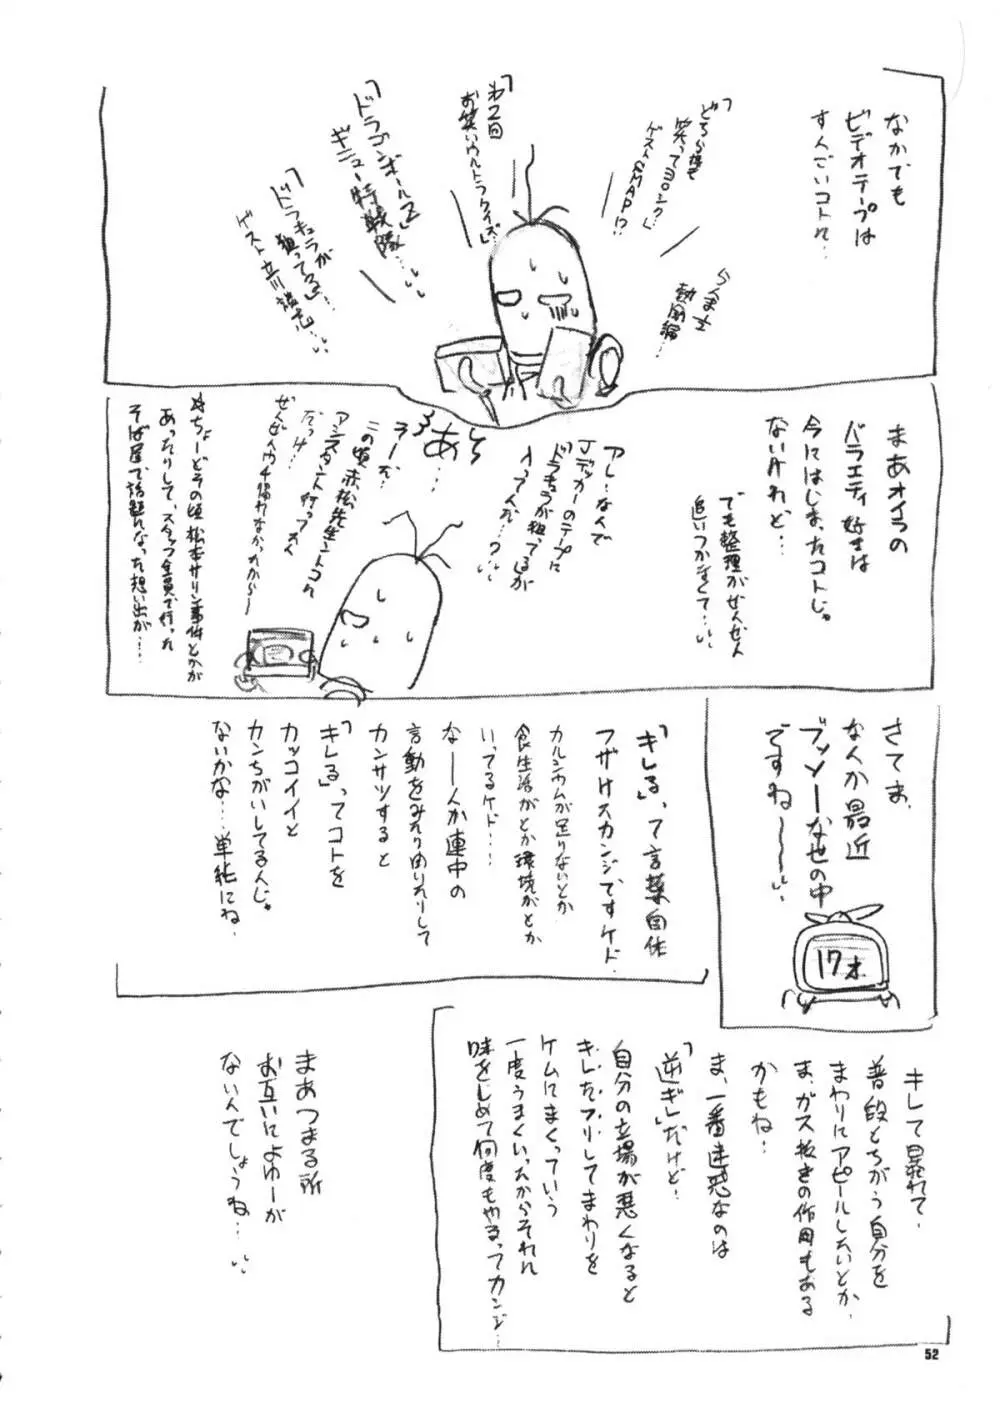 なかでも
ビデオテープは
すんごいコトに…
らんま½
熱闘編…
「どちら様も
笑ってヨロシク」
ゲストSMAP!?
「第2回
お笑いウルトラクイズ」
「ドラゴンボールZ」
ギニュー特戦隊…
「ドラキュラが
狙ってる」…
ゲスト立川談志
まあオイラの
バラエティ好きは
今にはじまったコトじゃ
ないけれど…
でも整理がぜんぜん
追いつかなくて…
アレ…なんで
Jデッカーのテープに
「ドラキュラが狙ってる」が
入ってんだ…?
あ…
そーだ
この頃赤松先生ントコに
アシスタント行ってて
だっけ…
ぜんぜんウチ帰れなかったから〜
ちょーどその頃松本サリン事件とかが
あったりして、スタッフ全員で行った
そば屋で話題になった想い出が…
さてま、
なんか最近
ブッソーな世の中
ですね〜〜
17才
「キレる」って言葉自体
フザけスカンジですケド、
カルシウムが足りないとか
食生活がとか環境がとか
いってるケド…
な――んか連中の
言動をみたり聞いたりして
カンサツすると
「キレる」ってコトを
カッコイイと
カンちがいしてるんじゃ
ないかな…単純にね。
キレて暴れて、
普段とちがう自分を
まわりにアピールしたいとか、
ま、ガス抜きの作用もある
かもね…
ま、一番迷惑なのは
「逆ギレ」だけど…
自分の立場が悪くなると
キレたフリしてまわりを
ケムにまくっていう
一度うまくいったからそれに
味をしめて何度もやるってカンジ…
まあつまる所
お互いによゆーが
ないんでしょうね…
52